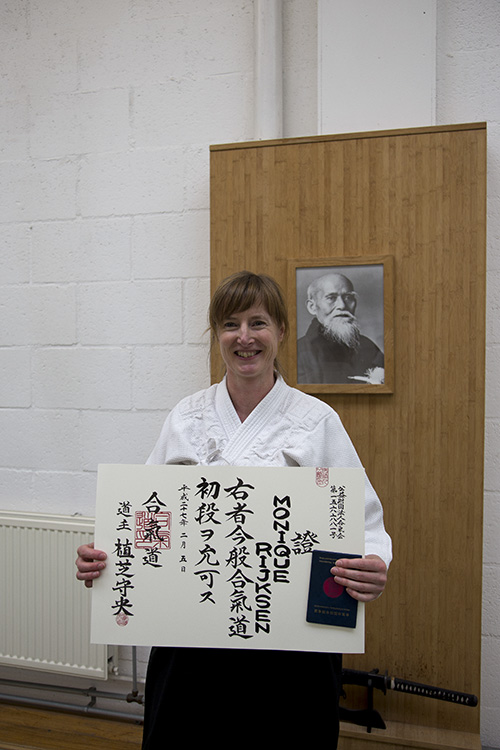 公益財団法人合氣会
證
MONIQUE
RIJKSEN
右者今般合氣道
初段ヲ允可ス
平成二十七年 二月 五日
合氣道
道主 植芝守央